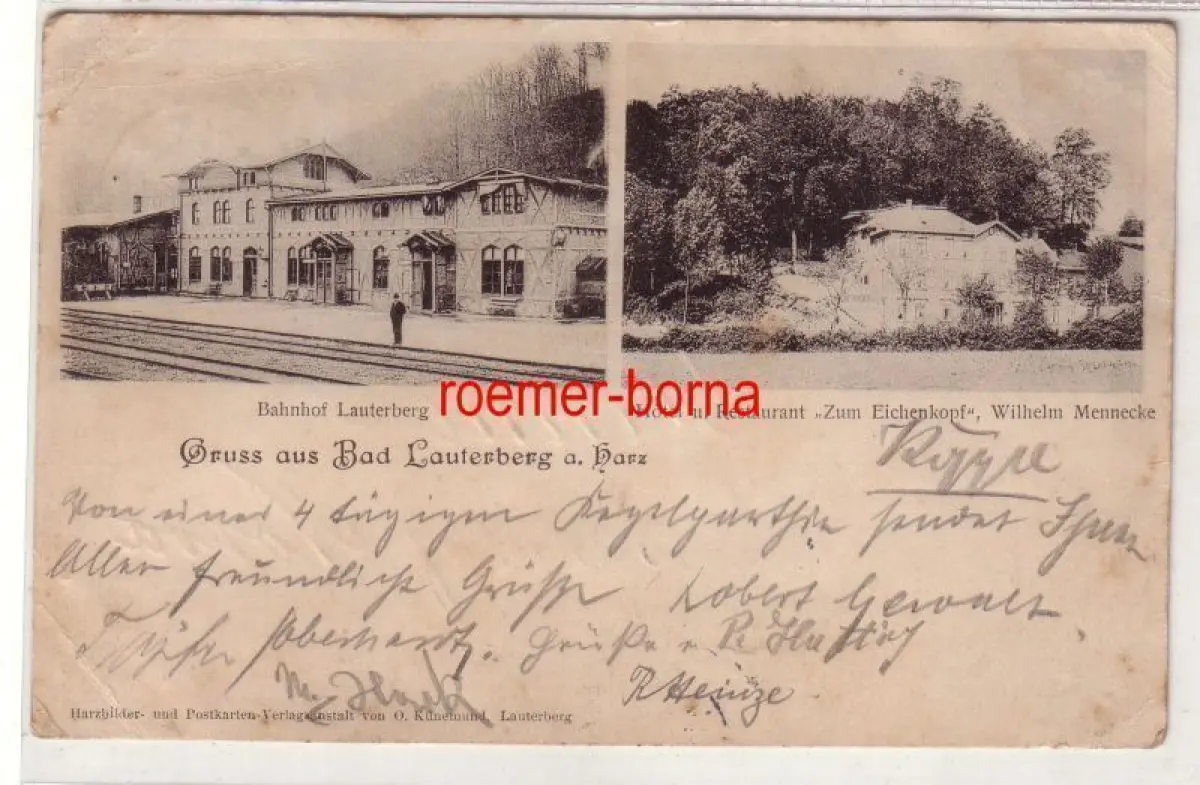 Bahnhof Lauterberg
roemer-borna
Hotel u. Restaurant „Zum Eichenkopf", Wilhelm Mennecke
Gruss aus Bad Lauterberg a. Harz
Von einer 4 tägigen Kegelparthie sendet Ihnen
Allen freundliche Grüße Robert Gewalt
Eberhardt. Grüße
R Heinze
Harzbilder- und Postkarten-Verlagsanstalt von O. Künemund, Lauterberg